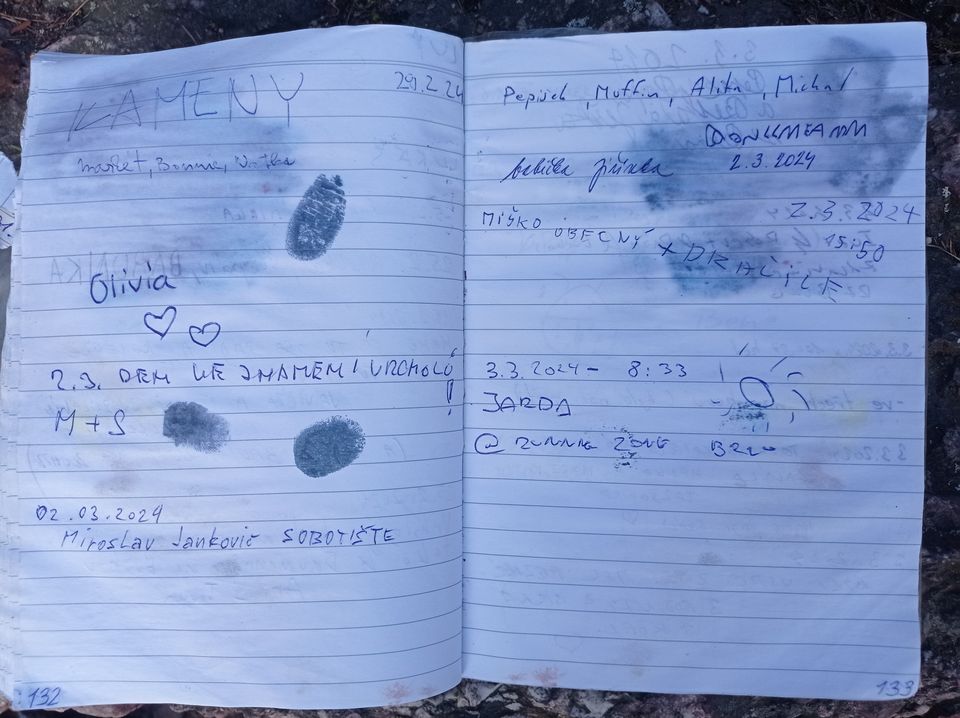 29.2.24
KAMENY
Olivia
2.3. DEN VE ZNAMENÍ VRCHOLŮ!
M + S
02.03.2024
Miroslav Jankovič SOBOTIŠTE
132
Pepíček, Muffin, Alita, Michal
2.3.2024
babička Jiřinka
2.3.2024
MIŠKO OBECNÝ 15:50
+ DRAČICE
3.3.2024 - 8:33
JARDA
@ RUNNING ZONE BRNO
133